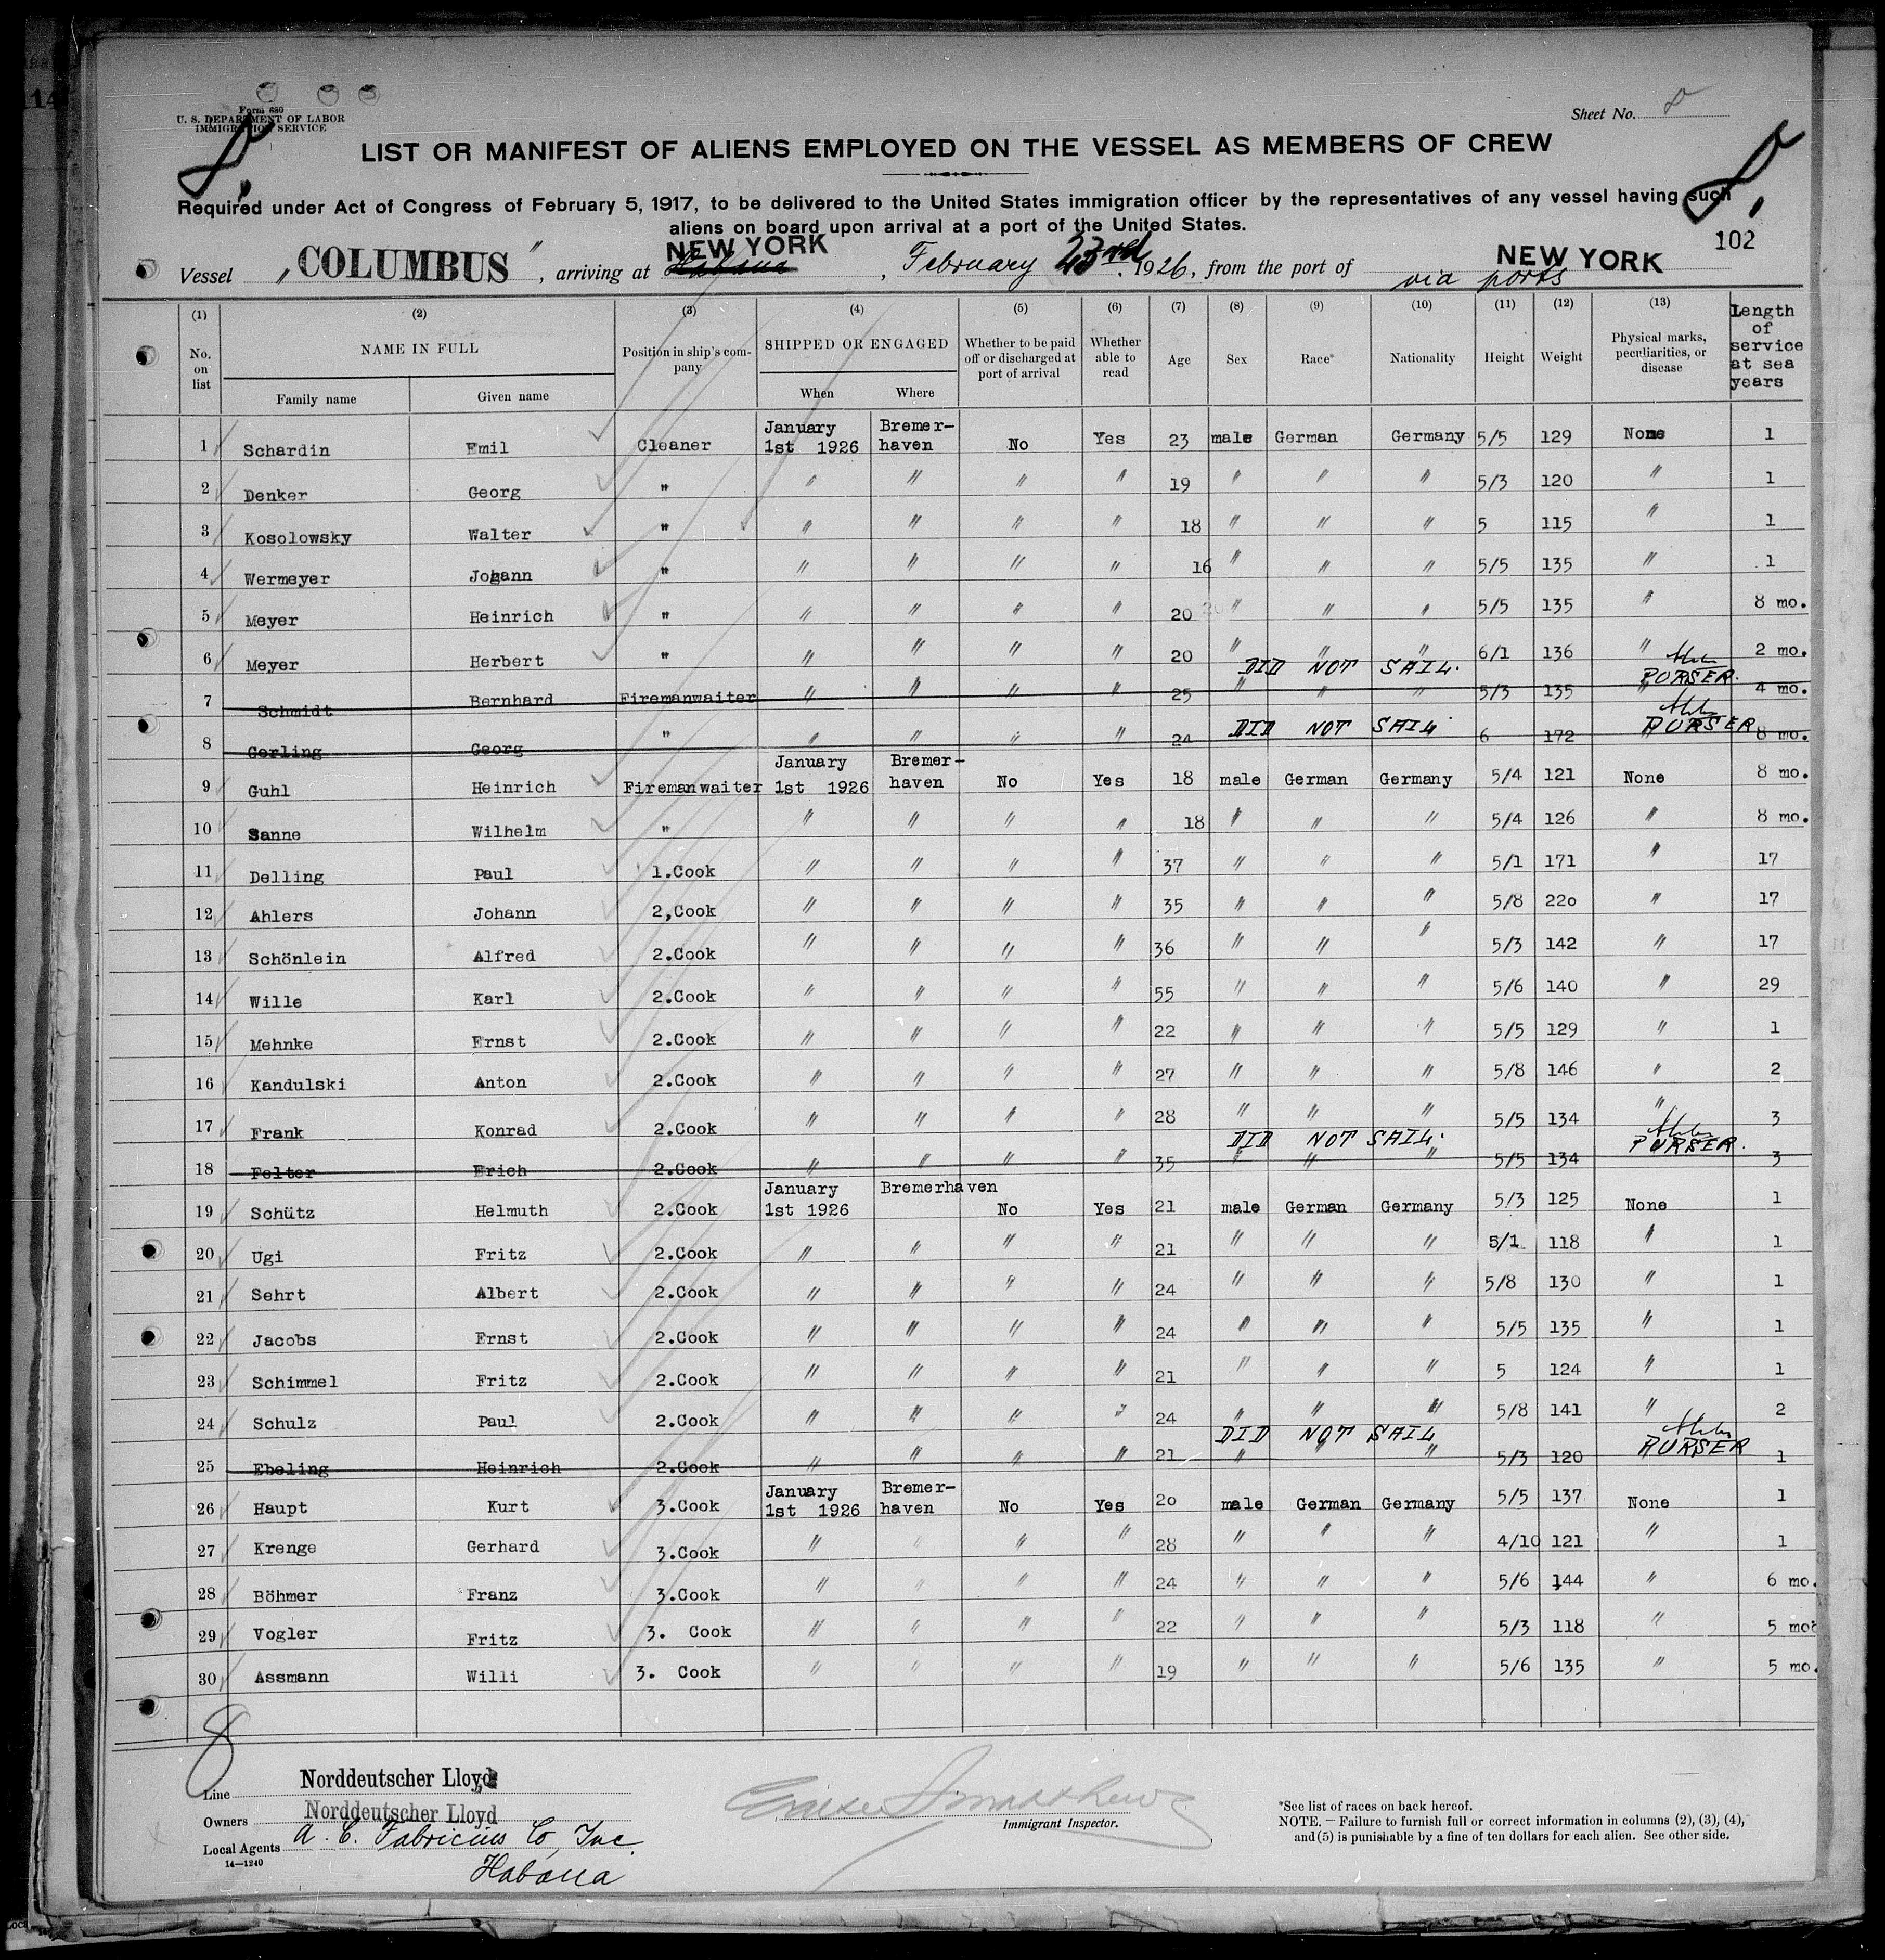 Form 680
U. S. DEPARTMENT OF LABOR
IMMIGRATION SERVICE
Sheet No. 8
8.
8.
LIST OR MANIFEST OF ALIENS EMPLOYED ON THE VESSEL AS MEMBERS OF CREW
Required under Act of Congress of February 5, 1917, to be delivered to the United States immigration officer by the representatives of any vessel having such
aliens on board upon arrival at a port of the United States.
102
Vessel „COLUMBUS", arriving at Habana NEW YORK, February 23rd. 1926, from the port of NEW YORK via ports
(1) (2) (3) (4) (5) (6) (7) (8) (9) (10) (11) (12) (13)
No. on list NAME IN FULL Family name Given name Position in ship's company SHIPPED OR ENGAGED When Where Whether to be paid off or discharged at port of arrival Whether able to read Age Sex Race* Nationality Height Weight Physical marks, peculiarities, or disease Length of service at sea years
1 Schardin Emil Cleaner January 1st 1926 Bremer-haven No Yes 23 male German Germany 5/5 129 None 1
2 Denker Georg " " " " " 19 " " " 5/3 120 " 1
3 Kosolowsky Walter " " " " " 18 " " " 5 115 " 1
4 Wermeyer Johann " " " " " 16 " " " 5/5 135 " 1
5 Meyer Heinrich " " " " " 20 20 " " " 5/5 135 " 8 mo.
6 Meyer Herbert " " " " " 20 " " " 6/1 136 " 2 mo.
DID NOT SAIL. PURSER.
7 Schmidt Bernhard Firemanwaiter " " " " 25 " " " 5/3 135 " 4 mo.
DID NOT SAIL. PURSER
8 Gerling Georg " " " " " 24 6 172 " 8 mo.
9 Guhl Heinrich Firemanwaiter January 1st 1926 Bremer-haven No Yes 18 male German Germany 5/4 121 None 8 mo.
10 Sanne Wilhelm " " " " " 18 " " " 5/4 126 " 8 mo.
11 Delling Paul 1.Cook " " " " 37 " " " 5/1 171 " 17
12 Ahlers Johann 2,Cook " " " " 35 " " " 5/8 220 " 17
13 Schönlein Alfred 2.Cook " " " " 36 " " " 5/3 142 " 17
14 Wille Karl 2.Cook " " " " 55 " " " 5/6 140 " 29
15 Mehnke Ernst 2.Cook " " " " 22 " " " 5/5 129 " 1
16 Kandulski Anton 2.Cook " " " " 27 " " " 5/8 146 " 2
17 Frank Konrad 2.Cook " " " " 28 " " " 5/5 134 " 3
DID NOT SAIL. PURSER.
18 Felter Erich 2.Cook " " " " 35 " " " 5/5 134 3
19 Schütz Helmuth 2.Cook January 1st 1926 Bremerhaven No Yes 21 male German Germany 5/3 125 None 1
20 Ugi Fritz 2.Cook " " " " 21 " " " 5/1 118 " 1
21 Sehrt Albert 2.Cook " " " " 24 " " " 5/8 130 " 1
22 Jacobs Ernst 2.Cook " " " " 24 " " " 5/5 135 " 1
23 Schimmel Fritz 2.Cook " " " " 21 " " " 5 124 " 1
24 Schulz Paul 2.Cook " " " " 24 " " " 5/8 141 " 2
DID NOT SAIL PURSER
25 Ebeling Heinrich 2.Cook " " " " 21 " " " 5/3 120 1
26 Haupt Kurt 3.Cook January 1st 1926 Bremer-haven No Yes 20 male German Germany 5/5 137 None 1
27 Krenge Gerhard 3.Cook " " " " 28 " " " 4/10 121 " 1
28 Böhmer Franz 3.Cook " " " " 24 " " " 5/6 144 " 6 mo.
29 Vogler Fritz 3. Cook " " " " 22 " " " 5/3 118 " 5 mo
30 Assmann Willi 3. Cook " " " " 19 " " " 5/6 135 " 5 mo.
8
Line Norddeutscher Lloyd
Owners Norddeutscher Lloyd
Local Agents A. C. Fabricius Co, Inc.
14—1240
Habana
Immigrant Inspector.
*See list of races on back hereof.
NOTE. — Failure to furnish full or correct information in columns (2), (3), (4),
and (5) is punishable by a fine of ten dollars for each alien. See other side.